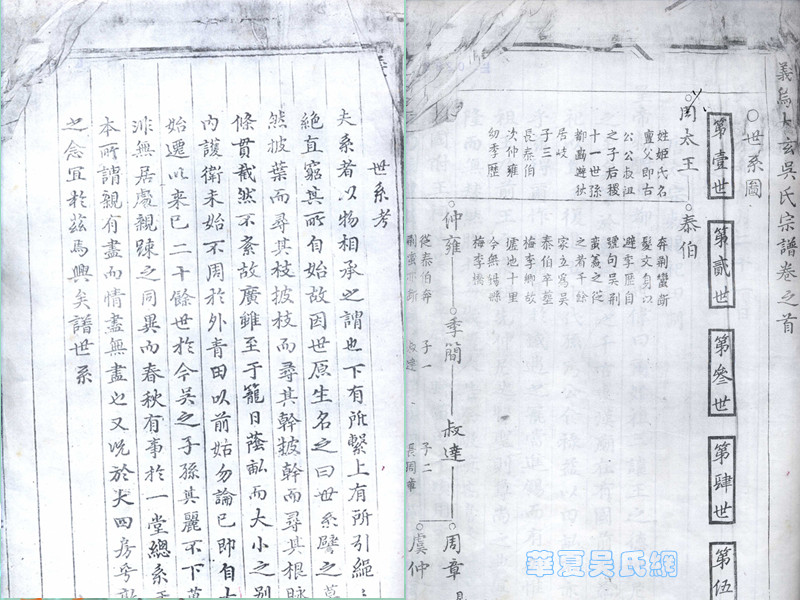 世系考
夫系者以物相承之謂也下有所繫上有所引繩
絕直窮其所自始故因世原生名之曰世系譬之
然披葉而尋其枝披枝而尋其幹披幹而尋其根脉
條貫截然不紊故廣雖至于籠日蔭畝而大小之別
內護衛未始不周於外青田以前姑勿論已即自
始遷以來已二十餘世於今吳之子孫其麗不下
無居處親踈之同異而春秋有事於一堂總系
本所謂親有盡而情盡無盡也又况於大四房
之念宜於茲焉興矣譜世系
義烏大玄吳氏宗譜卷之首
○世系圖
第壹世
第貳世
第叄世
第肆世
第伍
周太王
姓姬氏名
亶父即古
公公叔祖
之子后稷
十一世孫
都豳避狄
居岐
子三
長泰伯
次仲雍
幼季歷
泰伯
奔荊蠻斷
髮文身以
避季歷自
號句吳荊
蠻義之從
之者千餘
家立為吳
泰伯卒塟
梅李鄉
墟地十里
今無锡縣
梅李橋
仲雍
從泰伯奔
荊蠻亦斷
季簡
子一
叔達
叔達
子二
長周章
周章
虞仲
華夏吴氏網